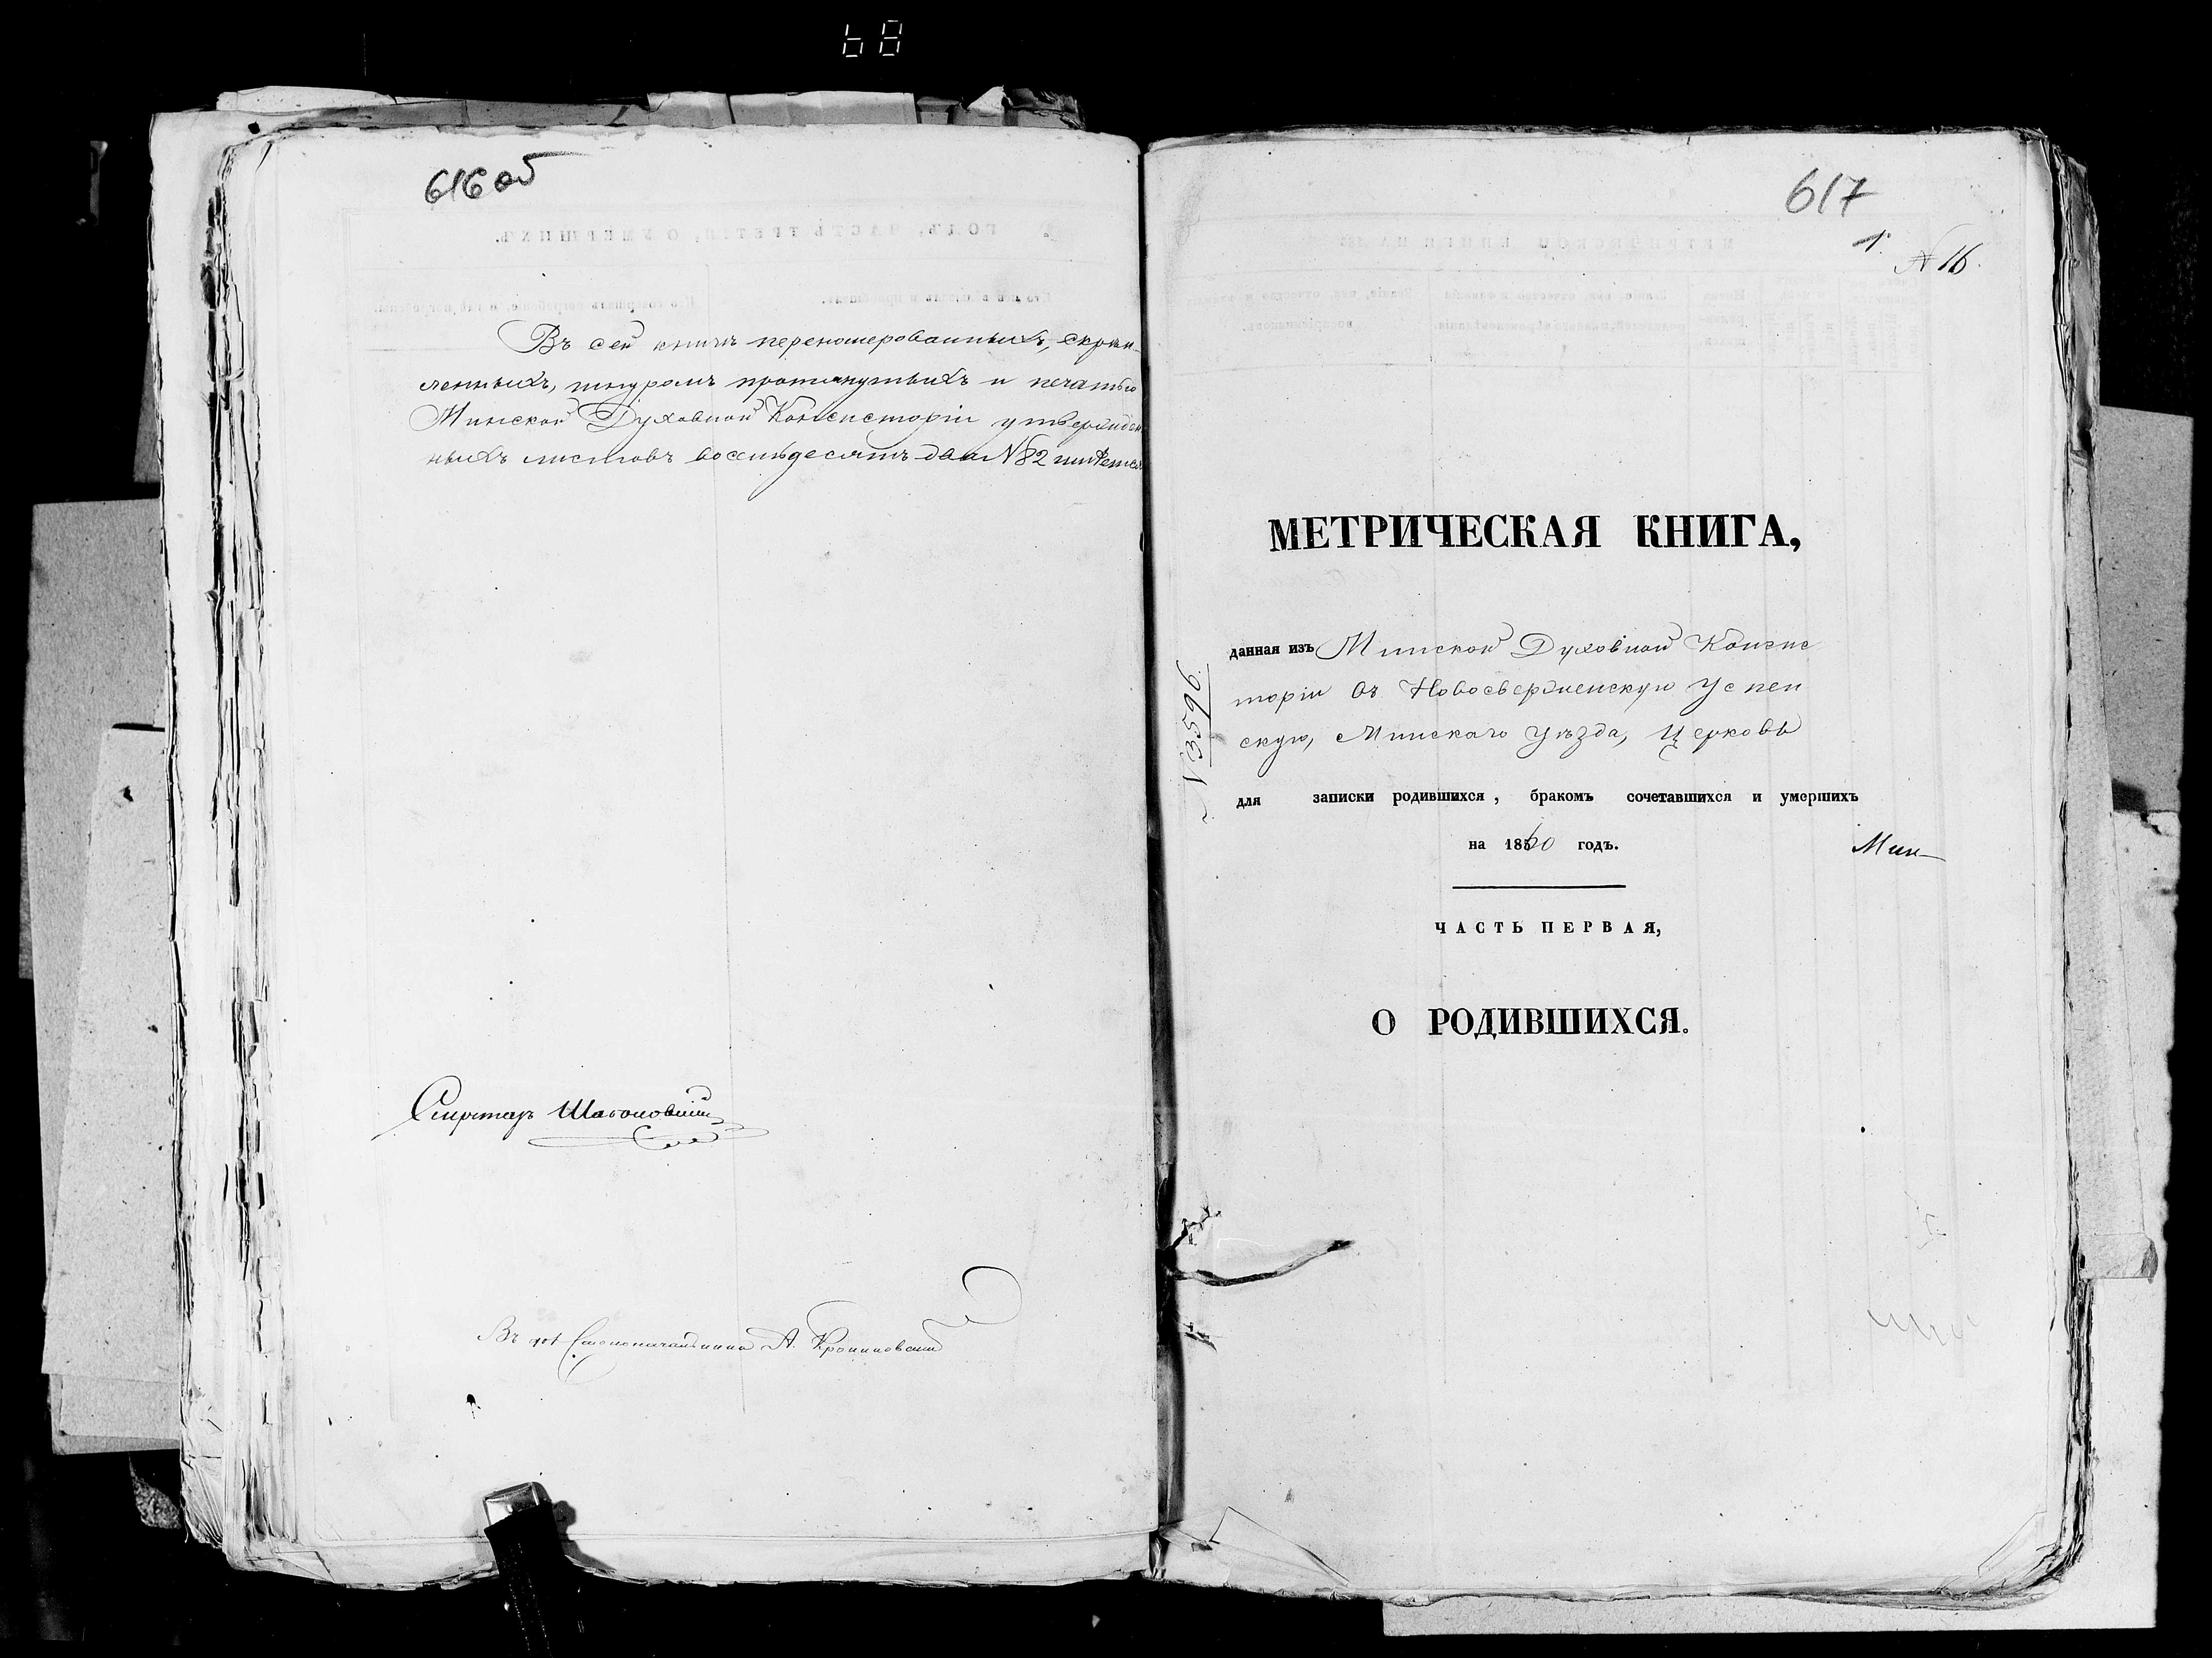 616 об
Въ сей книгѣ перенумерованныхъ, скрѣп-
ленныхъ, шнуромъ протянутыхъ и печатью
Минской Духовной Консисторіи утвержден
ныхъ листовъ восемьдесятъ два №82 имѣется
Секретарь
Въ дол. Столоначальника А.
617
1.
№ 16.
МЕТРИЧЕСКАЯ КНИГА,
данная изъ Минской Духовной Консис
торіи въ Новосверженскую Успен
скую, Минскаго Уѣзда, Церковь
№ 3596.
для записки родившихся, бракомъ сочетавшихся и умершихъ
на 1860 годъ.
Мин—
ЧАСТЬ ПЕРВАЯ,
О РОДИВШИХСЯ.